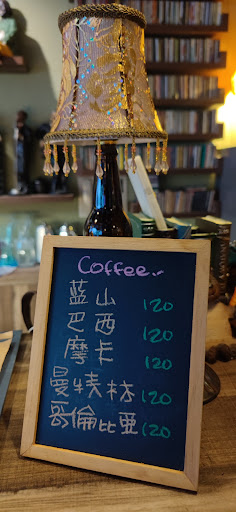 Coffee..
藍山 120
巴西 120
摩卡 120
曼特林 120
哥倫比亞 120